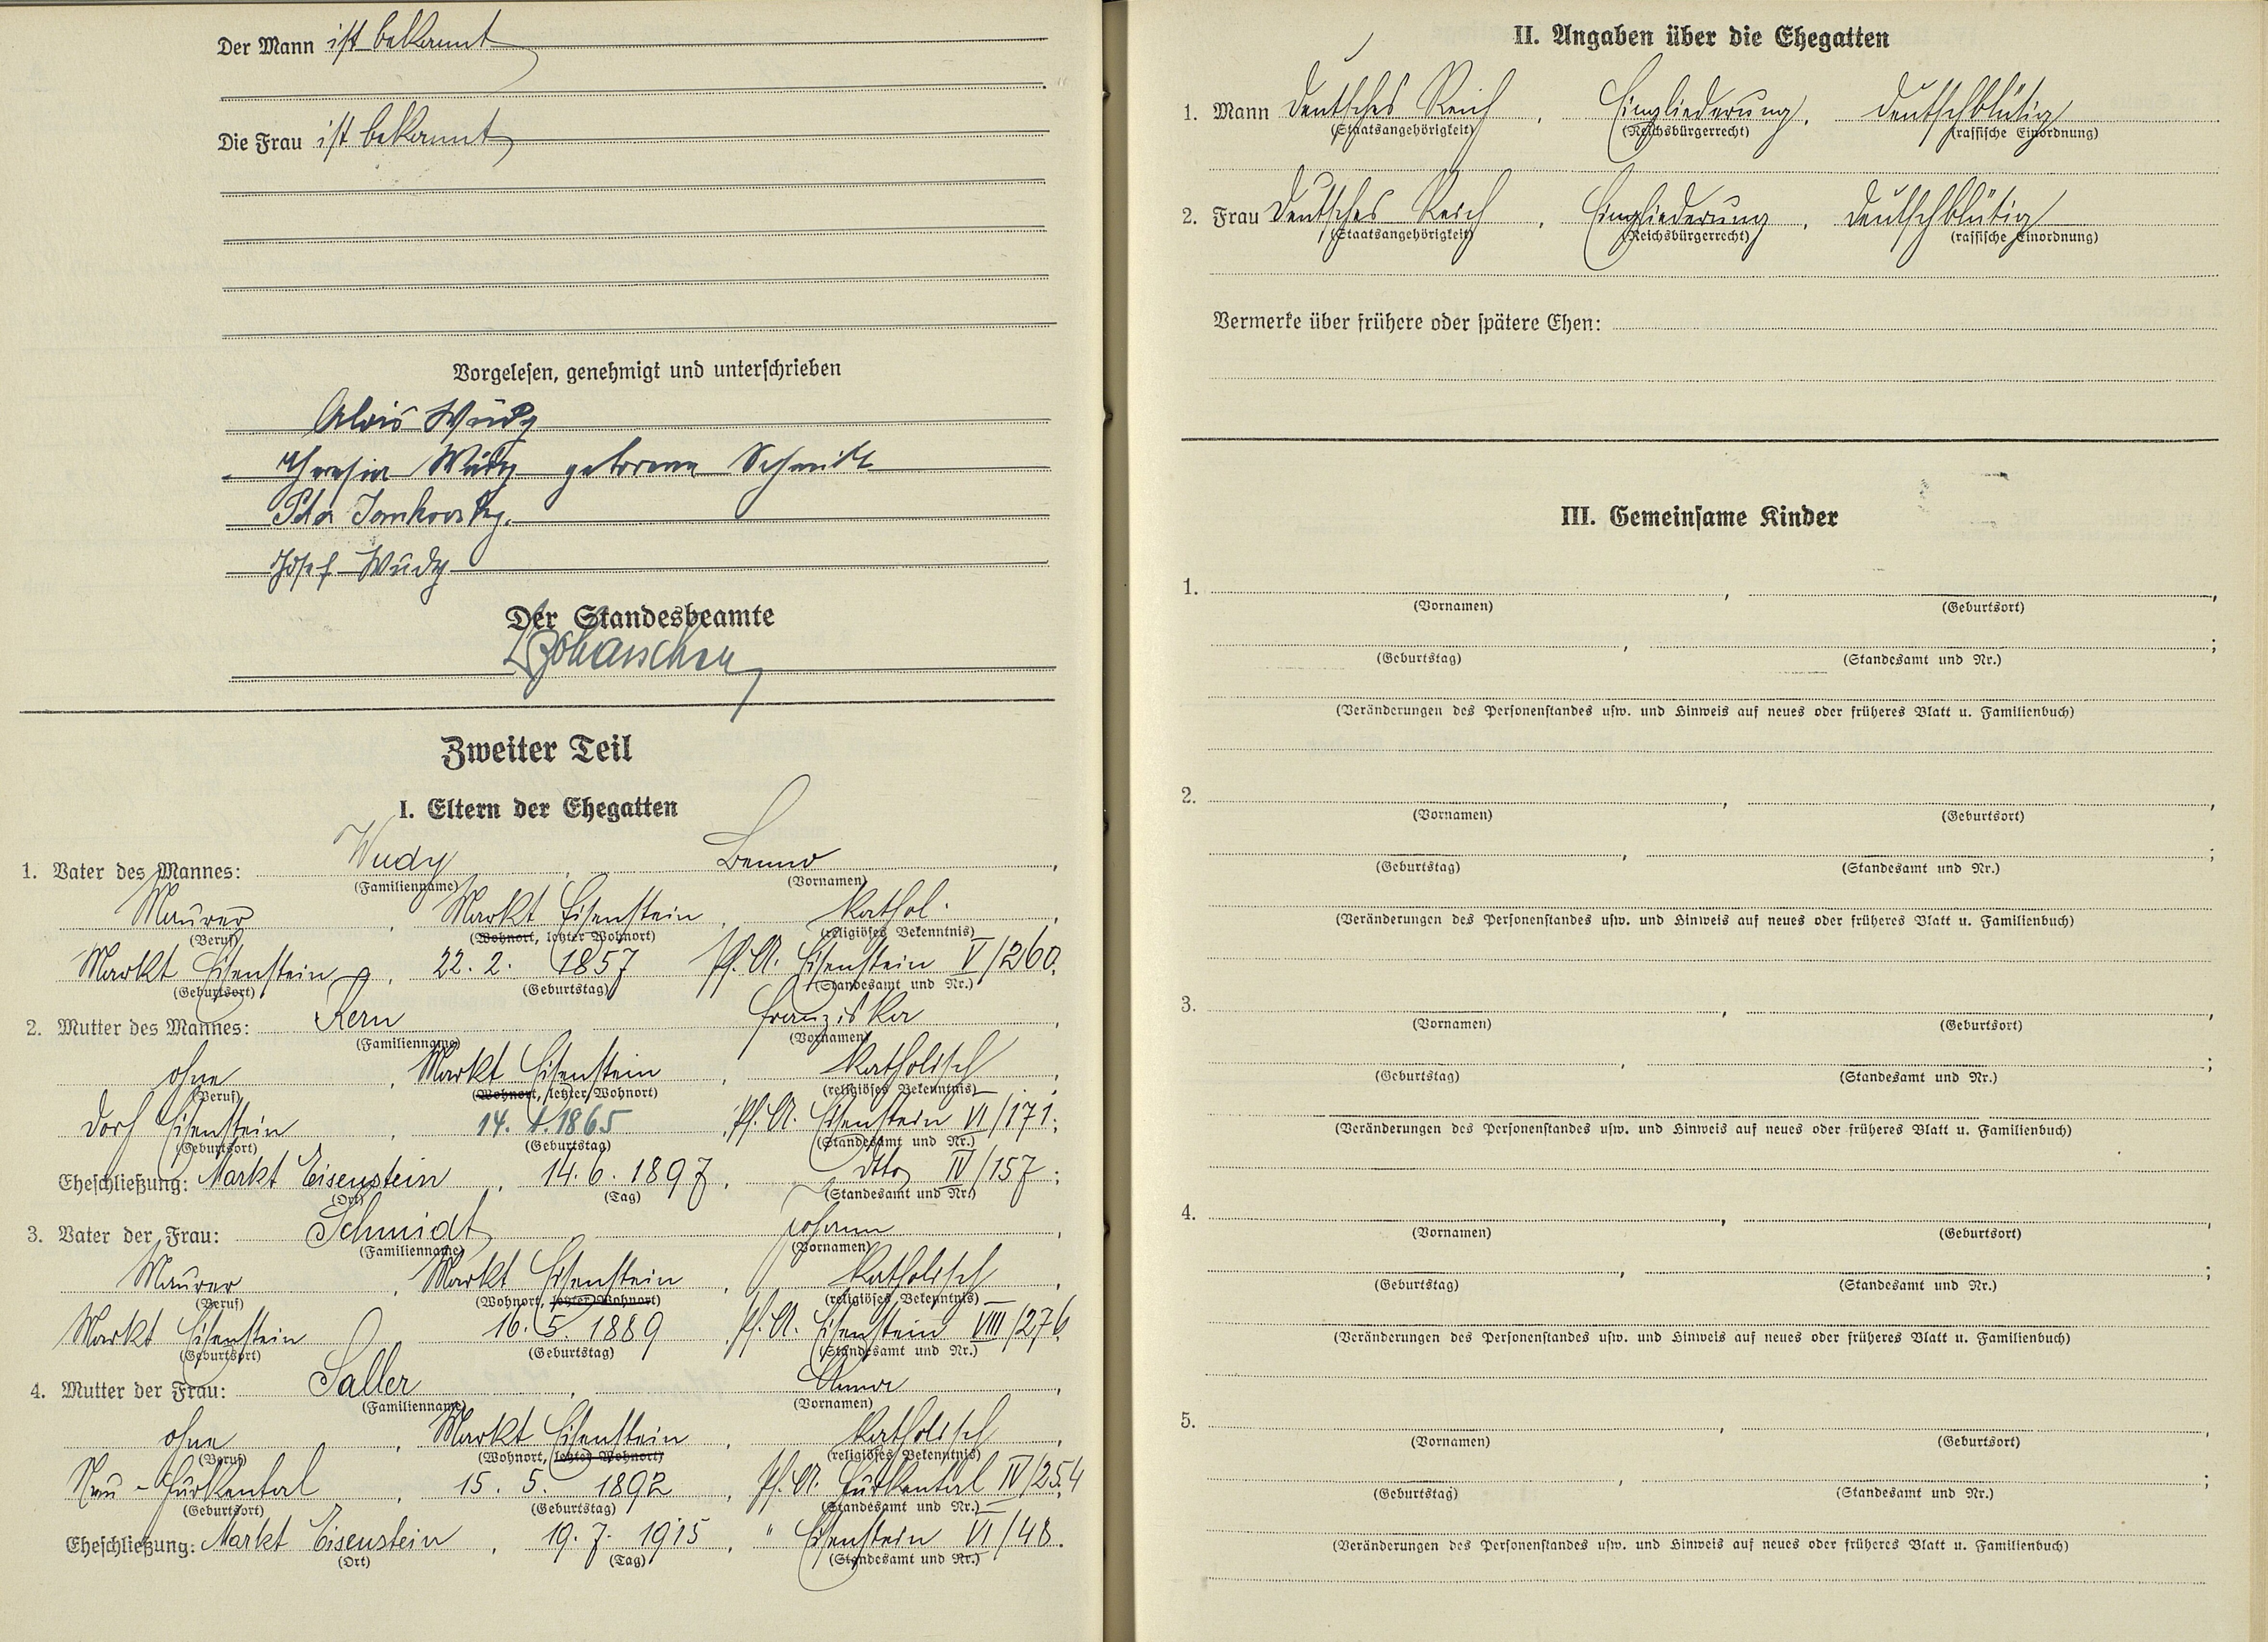 Der Mann ist bekannt
Die Frau ist bekannt
Vorgelesen, genehmigt und unterschrieben
Alois Wudy
Theresia Wudy geborene Schmidt
Josef Wudy
Der Standesbeamte
Zweiter Teil
I. Eltern der Ehegatten
1. Vater des Mannes: Wudy, Benno,
(Familienname) (Vornamen)
Maurer, Markt Eisenstein, kathol.,
(Beruf) (Wohnort, letzter Wohnort) (religiöses Bekenntnis)
Markt Eisenstein, 22. 2. 1857 Pf. A. Eisenstein V/260.
(Geburtsort) (Geburtstag) (Standesamt und Nr.)
2. Mutter des Mannes: Kern Franziska,
(Familienname) (Vornamen)
ohne, Markt Eisenstein, katholisch,
(Beruf) (Wohnort, letzter Wohnort) (religiöses Bekenntnis)
Dorf Eisenstein, 14. 1865, Pf. A. Eisenstein VI/171;
(Geburtsort) (Geburtstag) (Standesamt und Nr.)
Eheschließung: Markt Eisenstein, 14. 6. 1897, dtto IV/157;
(Ort) (Tag) (Standesamt und Nr.)
3. Vater der Frau: Schmidt Johann,
(Familienname) (Vornamen)
Maurer, Markt Eisenstein, katholisch,
(Beruf) (Wohnort, letzter Wohnort) (religiöses Bekenntnis)
Markt Eisenstein 16. 5. 1889, Pf. A. Eisenstein VIII/276,
(Geburtsort) (Geburtstag) (Standesamt und Nr.)
4. Mutter der Frau: Saller, Anna,
(Familienname) (Vornamen)
ohne, Markt Eisenstein, katholisch,
(Beruf) (Wohnort, letzter Wohnort) (religiöses Bekenntnis)
Neu-Hurkental, 15. 5. 1892, Pf. A. Hurkental IV/254
(Geburtsort) (Geburtstag) (Standesamt und Nr.)
Eheschließung: Markt Eisenstein, 19. 7. 1915, " Eisenstein VI/48.
(Ort) (Tag) (Standesamt und Nr.)
II. Angaben über die Ehegatten
1. Mann Deutsches Reich, Eingliederung, deutschblütig
(Staatsangehörigkeit) (Reichsbürgerrecht) (rassische Einordnung)
2. Frau Deutsches Reich, Eingliederung, deutschblütig
(Staatsangehörigkeit) (Reichsbürgerrecht) (rassische Einordnung)
Vermerke über frühere oder spätere Ehen:
III. Gemeinsame Kinder
1. , ,
(Vornamen) (Geburtsort)
, ;
(Geburtstag) (Standesamt und Nr.)
(Veränderungen des Personenstandes usw. und Hinweis auf neues oder früheres Blatt u. Familienbuch)
2. , ,
(Vornamen) (Geburtsort)
, ;
(Geburtstag) (Standesamt und Nr.)
(Veränderungen des Personenstandes usw. und Hinweis auf neues oder früheres Blatt u. Familienbuch)
3. , ,
(Vornamen) (Geburtsort)
, ;
(Geburtstag) (Standesamt und Nr.)
(Veränderungen des Personenstandes usw. und Hinweis auf neues oder früheres Blatt u. Familienbuch)
4. , ,
(Vornamen) (Geburtsort)
, ;
(Geburtstag) (Standesamt und Nr.)
(Veränderungen des Personenstandes usw. und Hinweis auf neues oder früheres Blatt u. Familienbuch)
5. , ,
(Vornamen) (Geburtsort)
, ;
(Geburtstag) (Standesamt und Nr.)
(Veränderungen des Personenstandes usw. und Hinweis auf neues oder früheres Blatt u. Familienbuch)